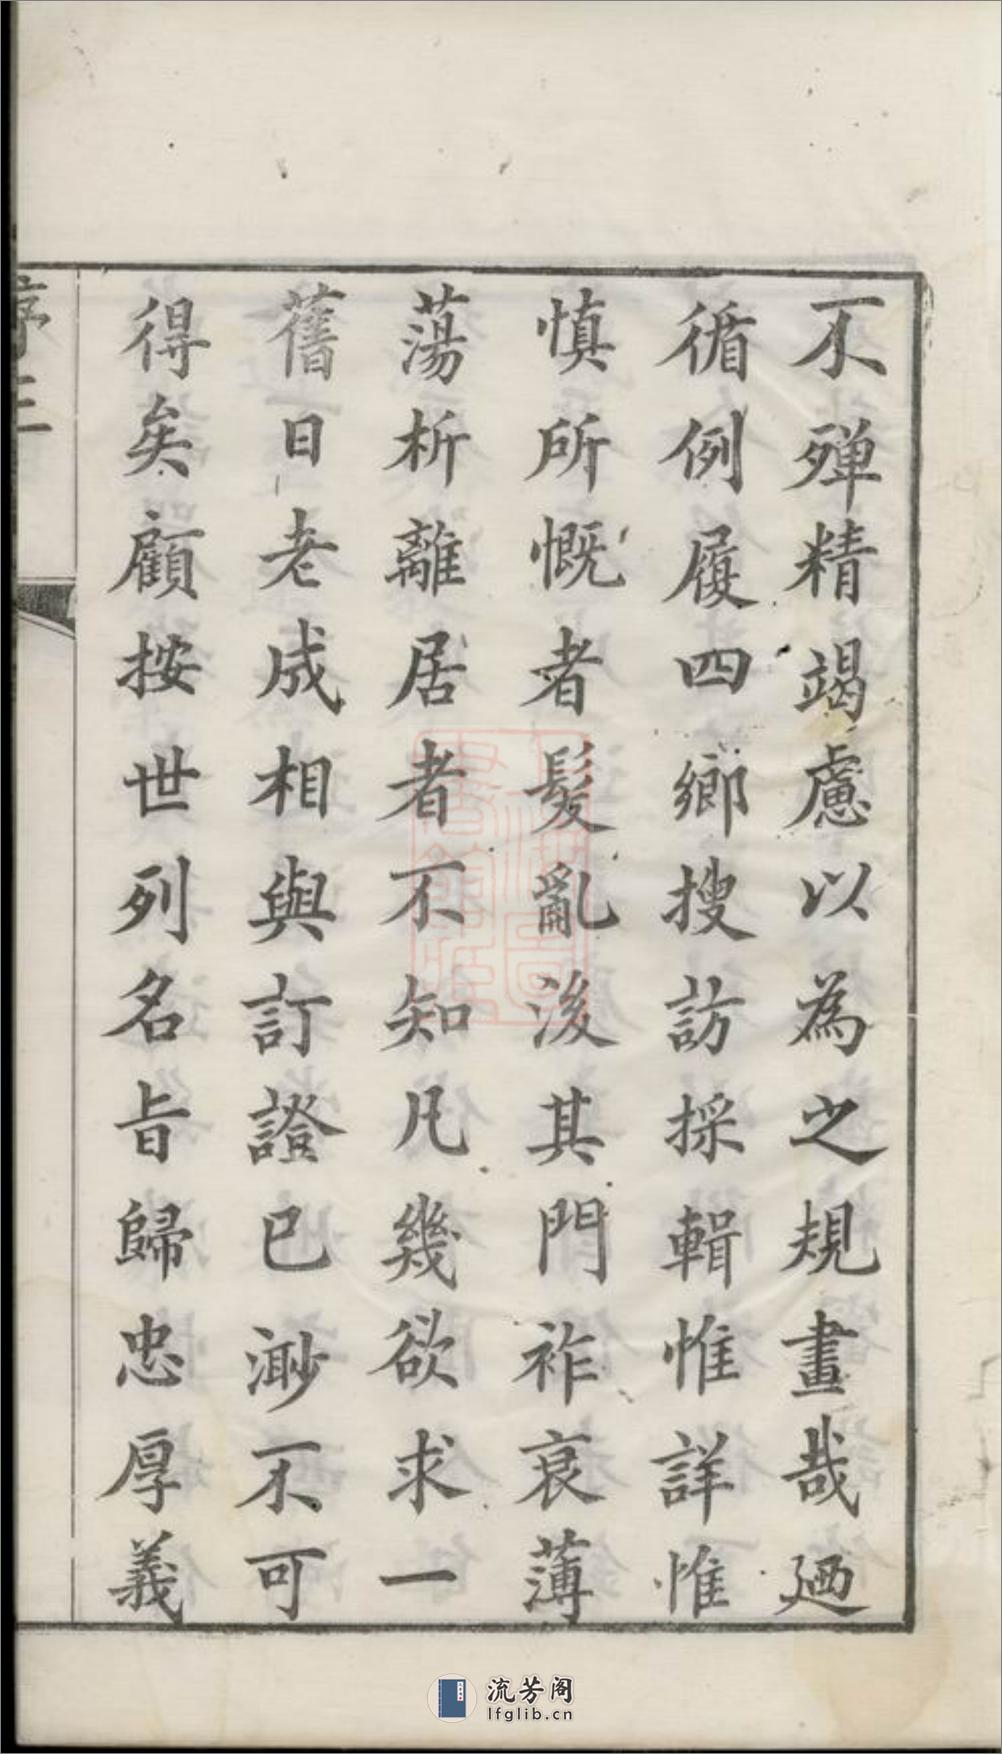 不殫精竭慮以為之規畫哉廼
循例履四鄉搜訪採輯惟詳惟
慎所慨者髮亂後其門祚衰薄
蕩析離居者不知凡幾欲求一
舊日老成相與訂證已渺不可
得矣顧按世列名旨歸忠厚義
序 三
流芳阁
lfglib.cn